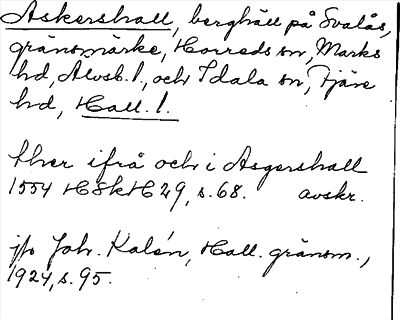 Askershall, berghäll på Svalås,
gränsmärke, Horreds sn, Marks
hd, Älvsb. l., och Idala sn, Fjäre
hd, Hall. l.
ther ifrå och i Asgershall
1554 HSkH 29, s. 68. avskr.
jfr Joh. Kalén, Hall. gränsm.,
1924, s. 95.